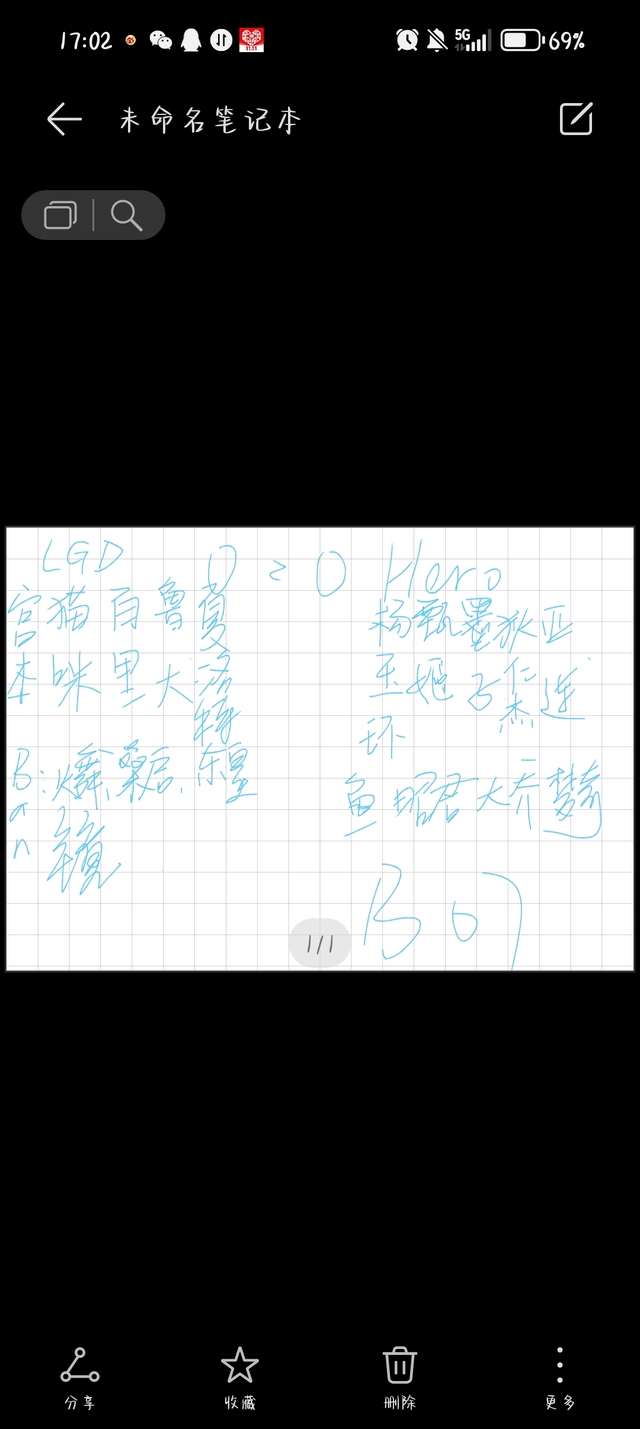 17:02 5G 69%
未命名笔记本
LGD 0:0 Hero
宫猫百鲁夏 杨甄墨狄亚
本咪里大洛 玉姬子仁连
特 杰
环
Ban: 桑启 东皇
鱼 昭君 大乔 梦奇
镜
BO7
1/1
分享 收藏 删除 更多